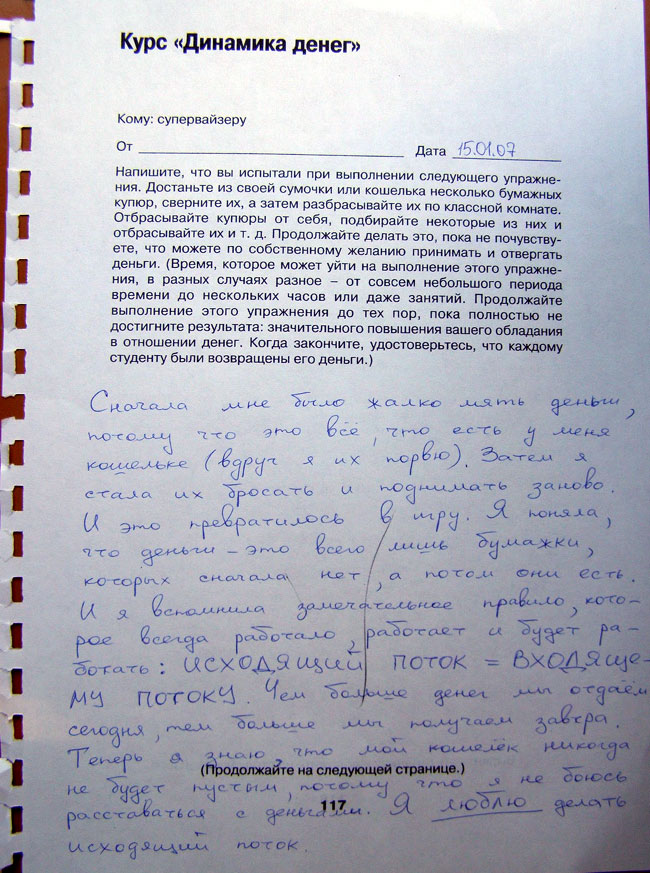 Курс «Динамика денег»
Кому: супервайзеру
От Дата 15.01.07
Напишите, что вы испытали при выполнении следующего упражне-
ния. Достаньте из своей сумочки или кошелька несколько бумажных
купюр, сверните их, а затем разбрасывайте их по классной комнате.
Отбрасывайте купюры от себя, подбирайте некоторые из них и
отбрасывайте их и т. д. Продолжайте делать это, пока не почувству-
ете, что можете по собственному желанию принимать и отвергать
деньги. (Время, которое может уйти на выполнение этого упражне-
ния, в разных случаях разное – от совсем небольшого периода
времени до нескольких часов или даже занятий. Продолжайте
выполнение этого упражнения до тех пор, пока полностью не
достигните результата: значительного повышения вашего обладания
в отношении денег. Когда закончите, удостоверьтесь, что каждому
студенту были возвращены его деньги.)
Сначала мне было жалко мять деньги,
потому что это всё, что есть у меня
кошельке (вдруг я их порвю). Затем я
стала их бросать и поднимать заново.
И это превратилось в игру. Я поняла,
что деньги – это всего лишь бумажки,
которых сначала нет, а потом они есть.
И я вспомнила замечательное правило, кото-
рое всегда работало, работает и будет ра-
ботать: ИСХОДЯЩИЙ ПОТОК = ВХОДЯЩЕ-
МУ ПОТОКУ. Чем больше денег мы отдаём
сегодня, тем больше мы получаем завтра.
Теперь я знаю, что мой кошелёк никогда
(Продолжайте на следующей странице.)
не будет пустым, потому что я не боюсь
117
расставаться с деньгами. Я люблю делать
исходящий поток.